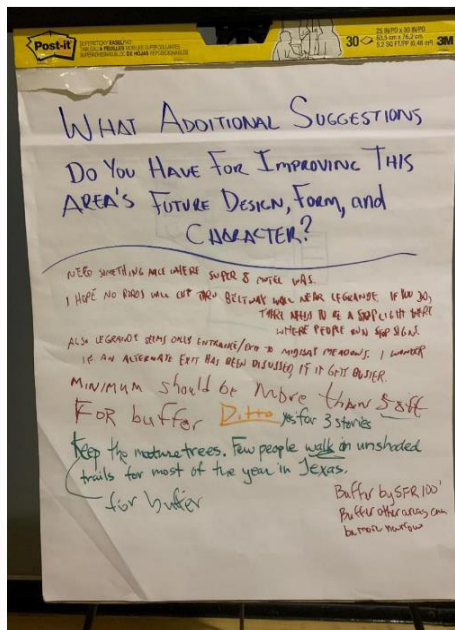 Post-it
SUPERSTICKY EASEL PAD
30
25 IN/PO x 30 IN/PO
63,5 cm x 76,2 cm
3M
WHAT ADDITIONAL SUGGESTIONS
DO YOU HAVE FOR IMPROVING THIS
AREA'S FUTURE DESIGN, FORM, AND
CHARACTER?
NEED SOMETHING NICE WHERE SUPER 8 MOTEL WAS.
I HOPE NO ROADS WILL CUT THRU BELTWAY WALL NEAR LEGRANDE. IF YOU DO,
THERE NEEDS TO BE A STOPLIGHT THERE
WHERE PEOPLE RUN STOP SIGNS.
ALSO LEGRANDE SEEMS ONLY ENTRANCE/EXIT TO MEADOWS. I WONDER
IF AN ALTERNATE EXIT HAS BEEN DISCUSSED IF IT GETS BUSIER.
MINIMUM should be More than 50ft
FOR buffer Ditto yes for 3 stories
Keep the mature trees. Few people walk on unshaded
trails for most of the year in Texas.
for buffer
Buffer by SFR 100'
Buffer other areas can
be more narrow